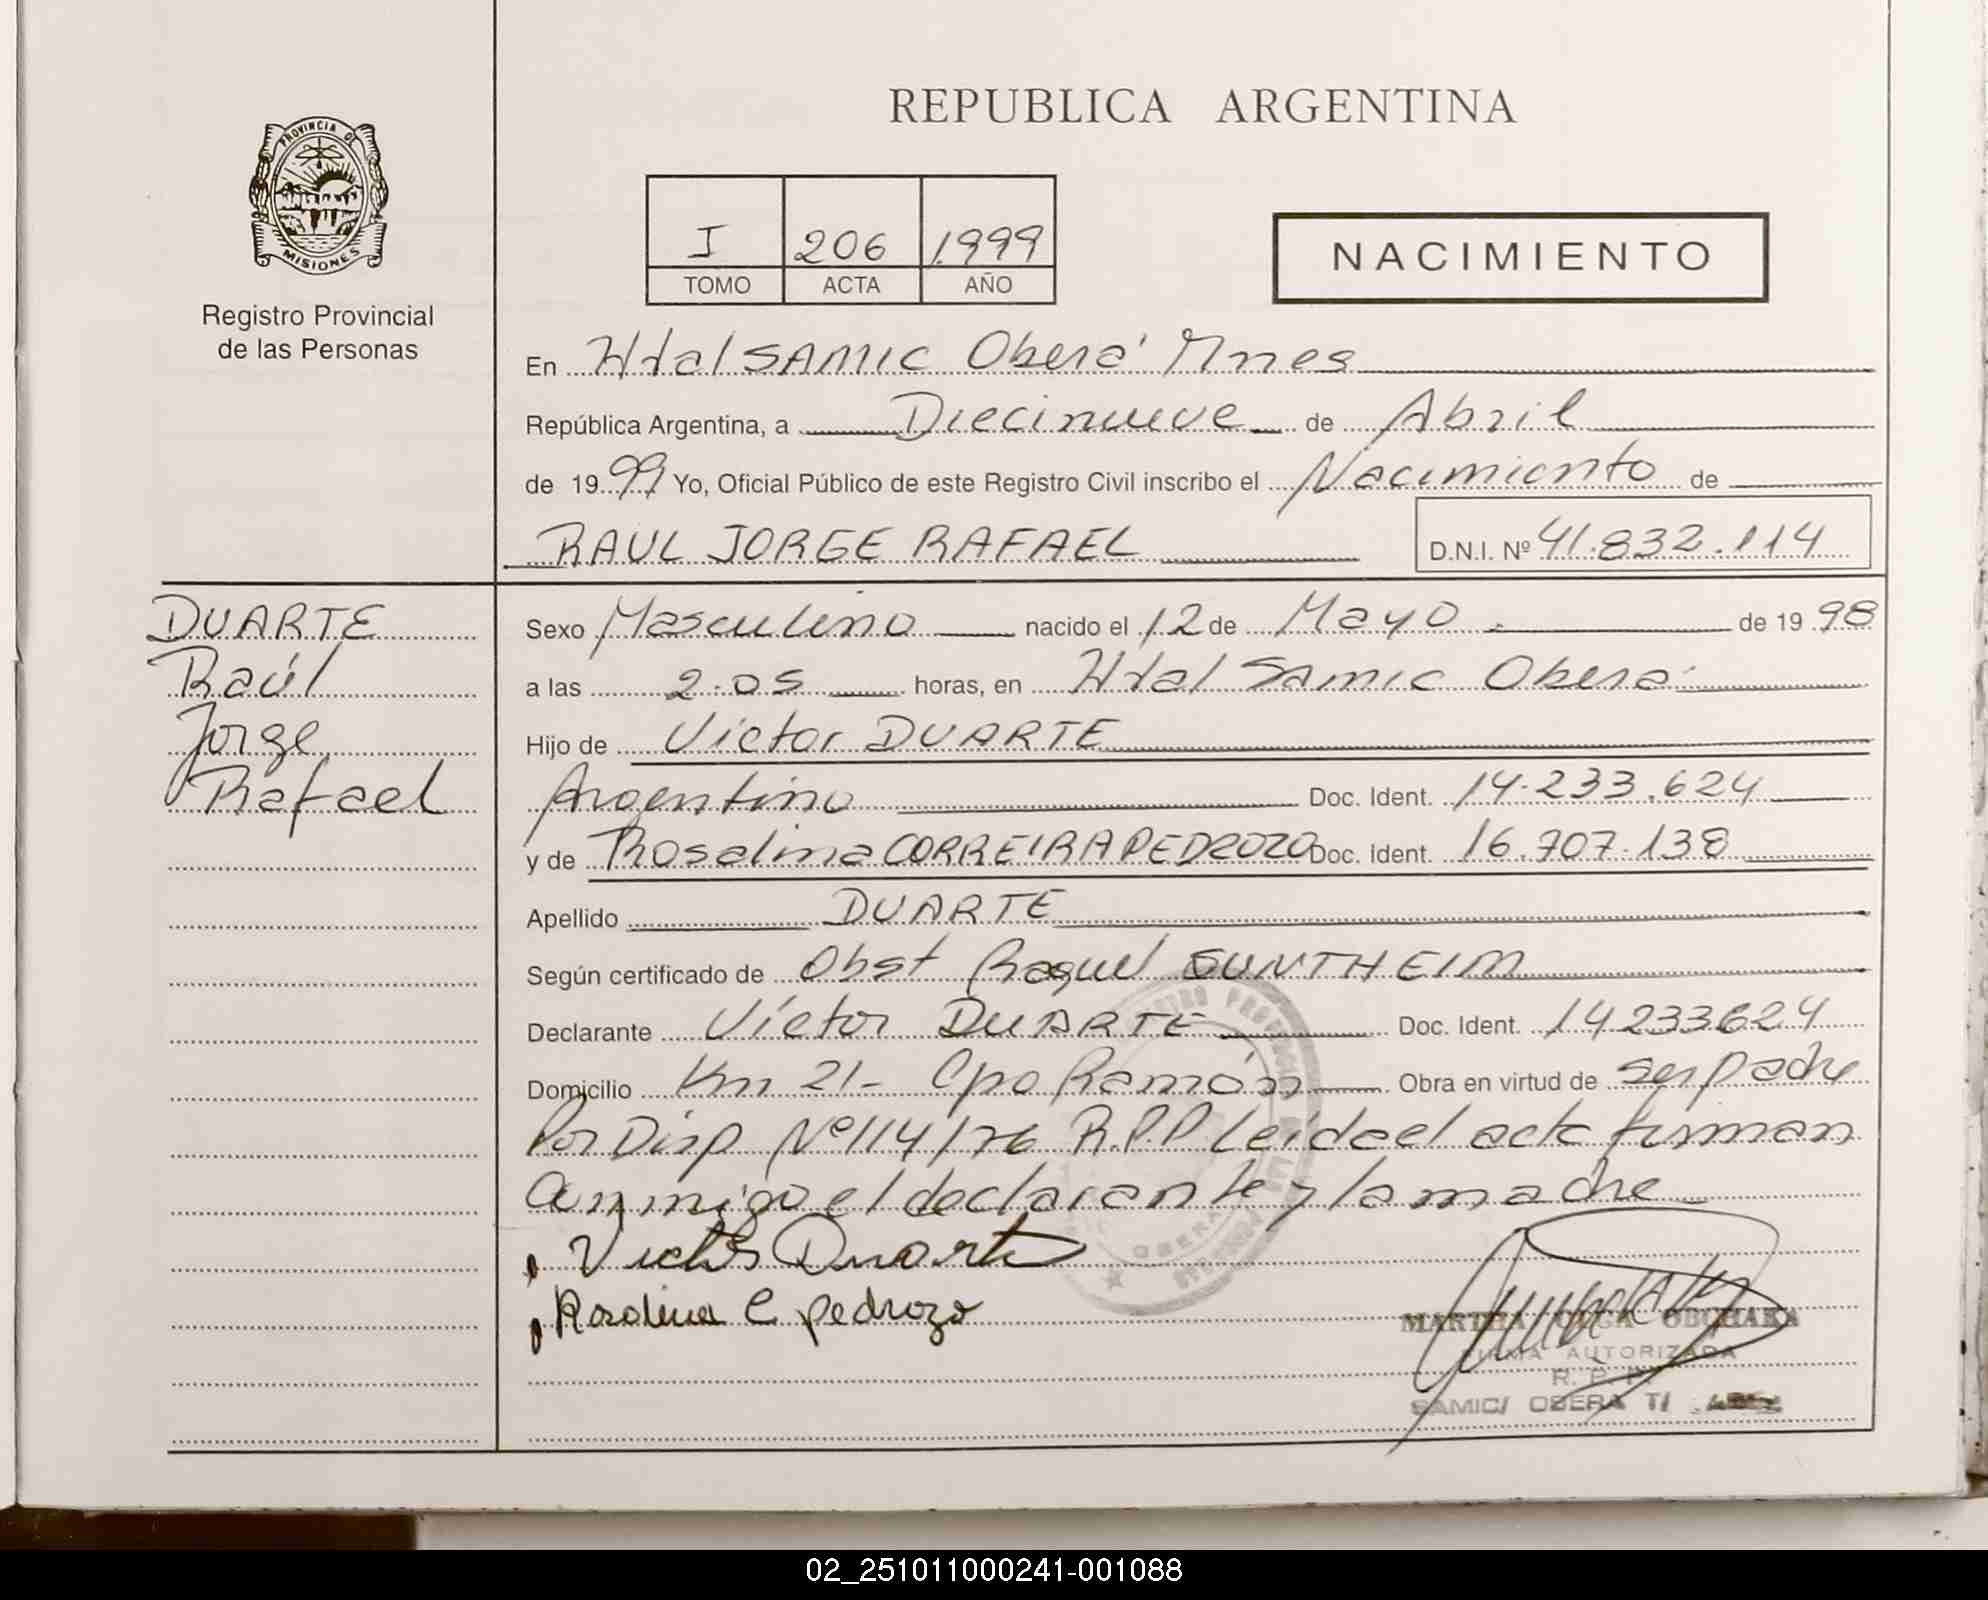 REPUBLICA ARGENTINA
PROVINCIA DE
MISIONES
Registro Provincial
de las Personas
I 206 1999
TOMO ACTA AÑO
NACIMIENTO
En Htal SAMIC Oberá Mnes
República Argentina, a Diecinueve de Abril
de 1999 Yo, Oficial Público de este Registro Civil inscribo el Nacimiento de
RAUL JORGE RAFAEL D.N.I. Nº 41.832.114
DUARTE
Raúl
Jorge
Rafael
Sexo Masculino nacido el 12 de Mayo de 1998
a las 2.05 horas, en Htal Samic Oberá
Hijo de Víctor DUARTE
Argentino Doc. Ident. 14.233.624
y de Rosalina CORREIRA PEDROZO Doc. Ident. 16.707.138
Apellido DUARTE
Según certificado de Obst Raquel SUNTHEIM
Declarante Víctor DUARTE Doc. Ident. 14233624
Domicilio Km 21- Cpo Ramón Obra en virtud de ser padre
Por Disp Nº 114/76 R.P.P Leida el acta firman
conmigo el declarante y la madre
Victor Duarte
Rosalina C pedrozo
OBERA
MARTHA OLGA OBCHAKA
FIRMA AUTORIZADA
R. P. P.
SAMIC/ OBERA T/
02_251011000241-001088